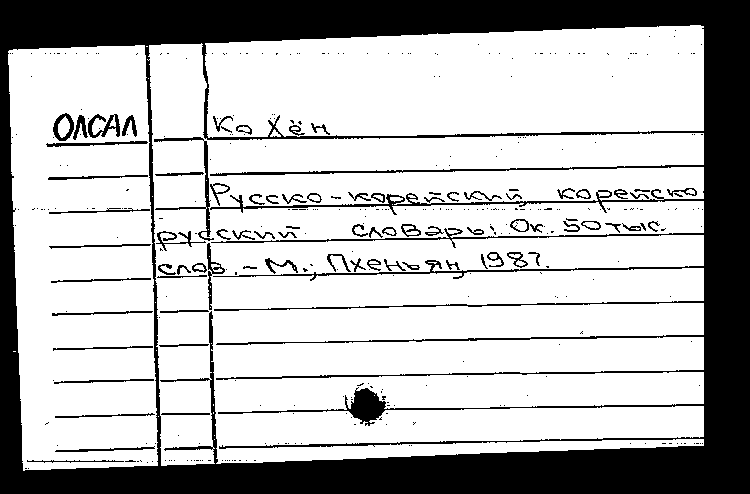 ОЛСАЛ Ко Хён
Русско-корейский, корейско
русский словарь: Ок. 50 тыс.
слов. - М.; Пхеньян, 1987.